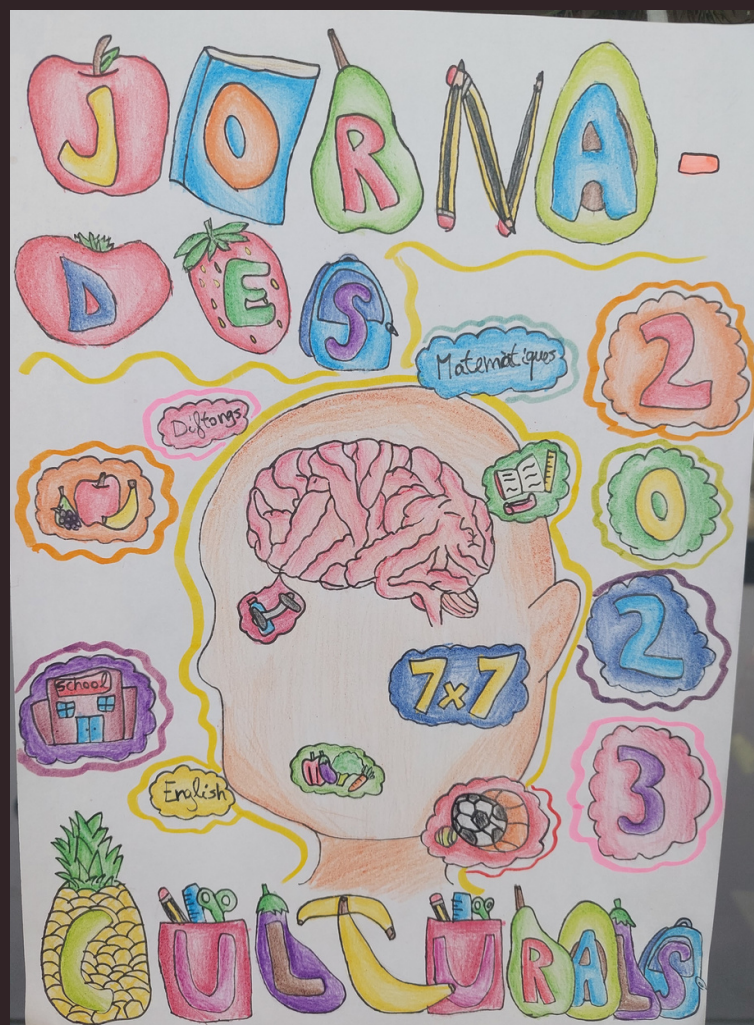 JORNA-
DES
Matemàtiques
2
Diftongs
0
2
7x7
school
3
English
CULTURALS